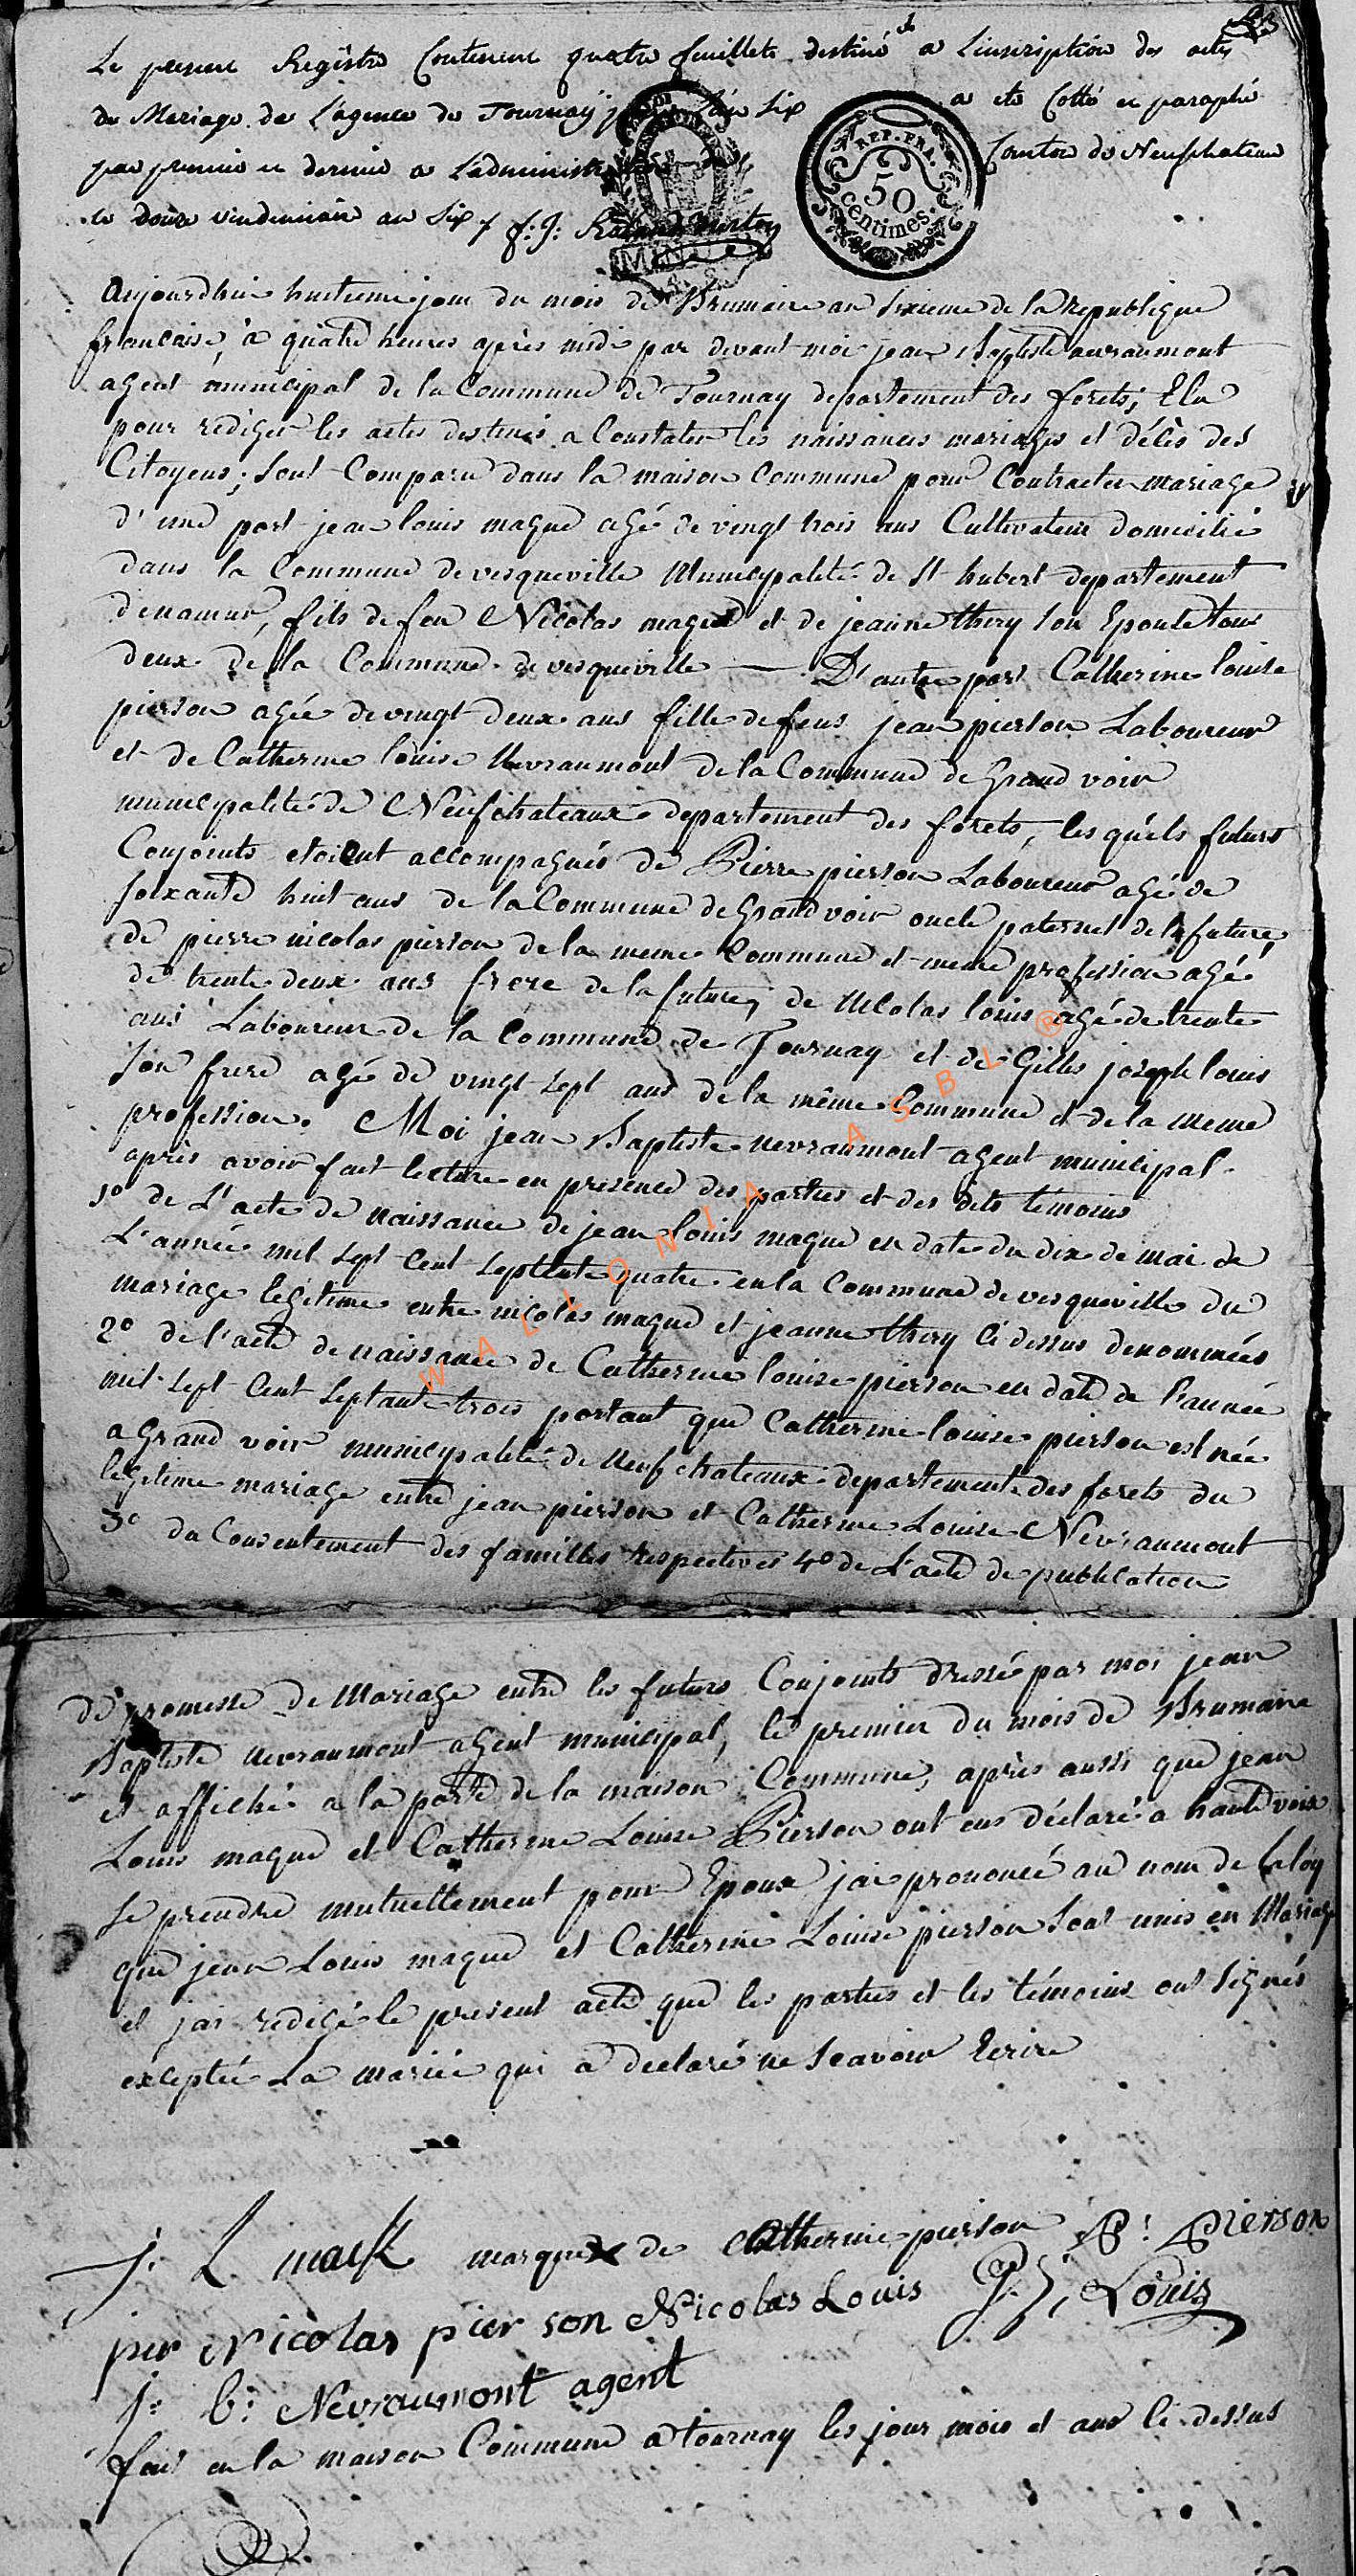 Le present Registre Contenant quatre feuillets destiné a L'inscription des actes
du Mariage de L'agence de Tournay pour L'an Six a ete Cotté et paraphé
par premier et dernier a L'administration Canton de Neufchateau
ce douze vendemiaire an Six
REP. FRA.
50
centimes.
Aujourdhui huitieme jour du mois de Brumaire an Sixieme de la republique
francaise, à quatre heures après midi par devant moi jean Baptiste nevraumont
agent municipal de la Commune de Tournay departement des forets, Elu
pour rediger les actes destinés a Constater les naissances mariages et décès des
Citoyens; sont Comparu dans la maison Commune pour Contracter mariage
d'une part jean louis maque agé de vingt trois ans Cultivateur domicilié
dans la Commune de vesqueville Municipalité de St hubert departement
de namur, fils de feu Nicolas maque et de jeanne thery son Epouse tous
deux de la Commune de vesqueville — D'autre part Catherine louise
pierson agée de vingt deux ans fille de feus jean pierson Laboureur
et de Catherine louise Nevraumont de la Commune de Grand voir
municipalité de Neufchateaux departement des forets, les quels futurs
Conjoints etoient accompagnés de Pierre pierson Laboureur agé de
soixante huit ans de la Commune de Grand voir oncle paternel de la future,
de pierre nicolas pierson de la meme Commune et meme profession agé
de trente deux ans frere de la future, de Nicolas louis agé de trente
ans Laboureur de la Commune de Tournay et de Gilles joseph louis
son frere agé de vingt sept ans de la même Commune et de la meme
profession. Moi jean Baptiste nevraumont agent municipal
après avoir fait lecture en presence des parties et des dits témoins
1º de L'acte de naissance de jean louis maque en date du dix de mai de
L'année mil sept Cent septente quatre en la Commune de vesqueville du
mariage legitime entre nicolas maque et jeanne thery ci dessus denommés
2º de l'acte de naissance de Catherine louise pierson en date de l'année
mil sept Cent septante trois portant que Catherine louise pierson est née
a Grand voir municipalité de neufchateaux departement des forets du
legitime mariage entre jean pierson et Catherine Louise Nevraumont
3º du Consentement des familles respectives 4º de L'acte de publication
de promesse de Mariage entre les futurs Conjoints dressé par moi jean
Baptiste nevraumont agent municipal, le premier du mois de Brumaire
et affiché a la porte de la maison Commune, après aussi que jean
Louis maque et Catherine Louise Pierson ont eus déclaré a haute voix
se prendre mutuellement pour Epoux jai prononcé au nom de la loy
que jean Louis maque et Catherine Louise pierson sont unis en Mariage
et jai redigé le present acte que les parties et les témoins ont signés
exceptée La mariée qui a declaré ne scavoir Ecrire
j. L mack marque X de Catherine pierson P: Pierson
pier Nicolas pier son Nicolas Louis G. j. Louis
j: b: Nevraumont agent
fait en la maison Commune a tournay les jour mois et an ci dessus
WALLONIA ASBL ®